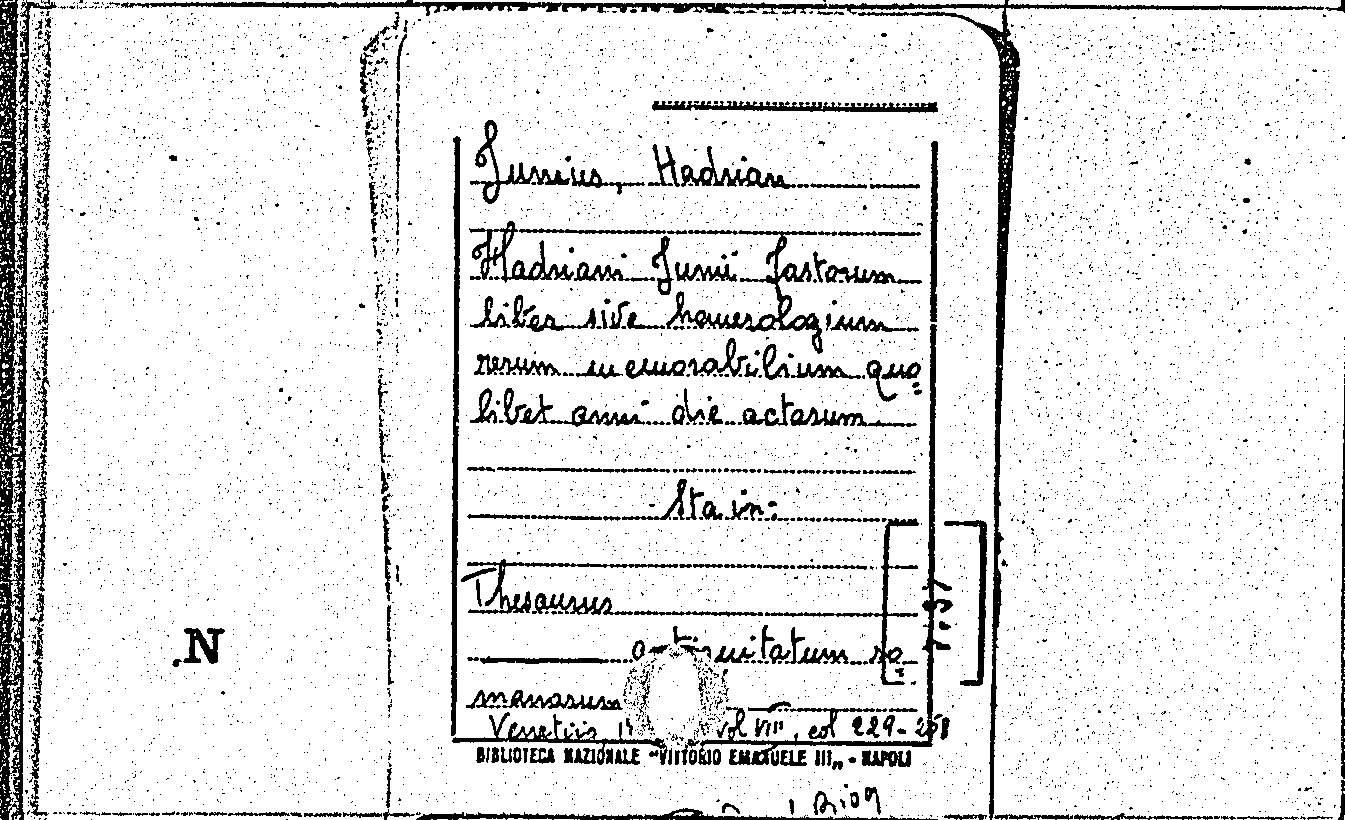 Junius, Hadrian
Hadriani Junii fastorum
liber sive hemerologium
rerum memorabilium quo=
libet anni die actarum
Sta in:
Thesaurus
antiquitatum ro=
manarum
Venetiis, vol VIII, col 229-258
BIBLIOTECA NAZIONALE "VITTORIO EMANUELE III„ - NAPOLI
.N